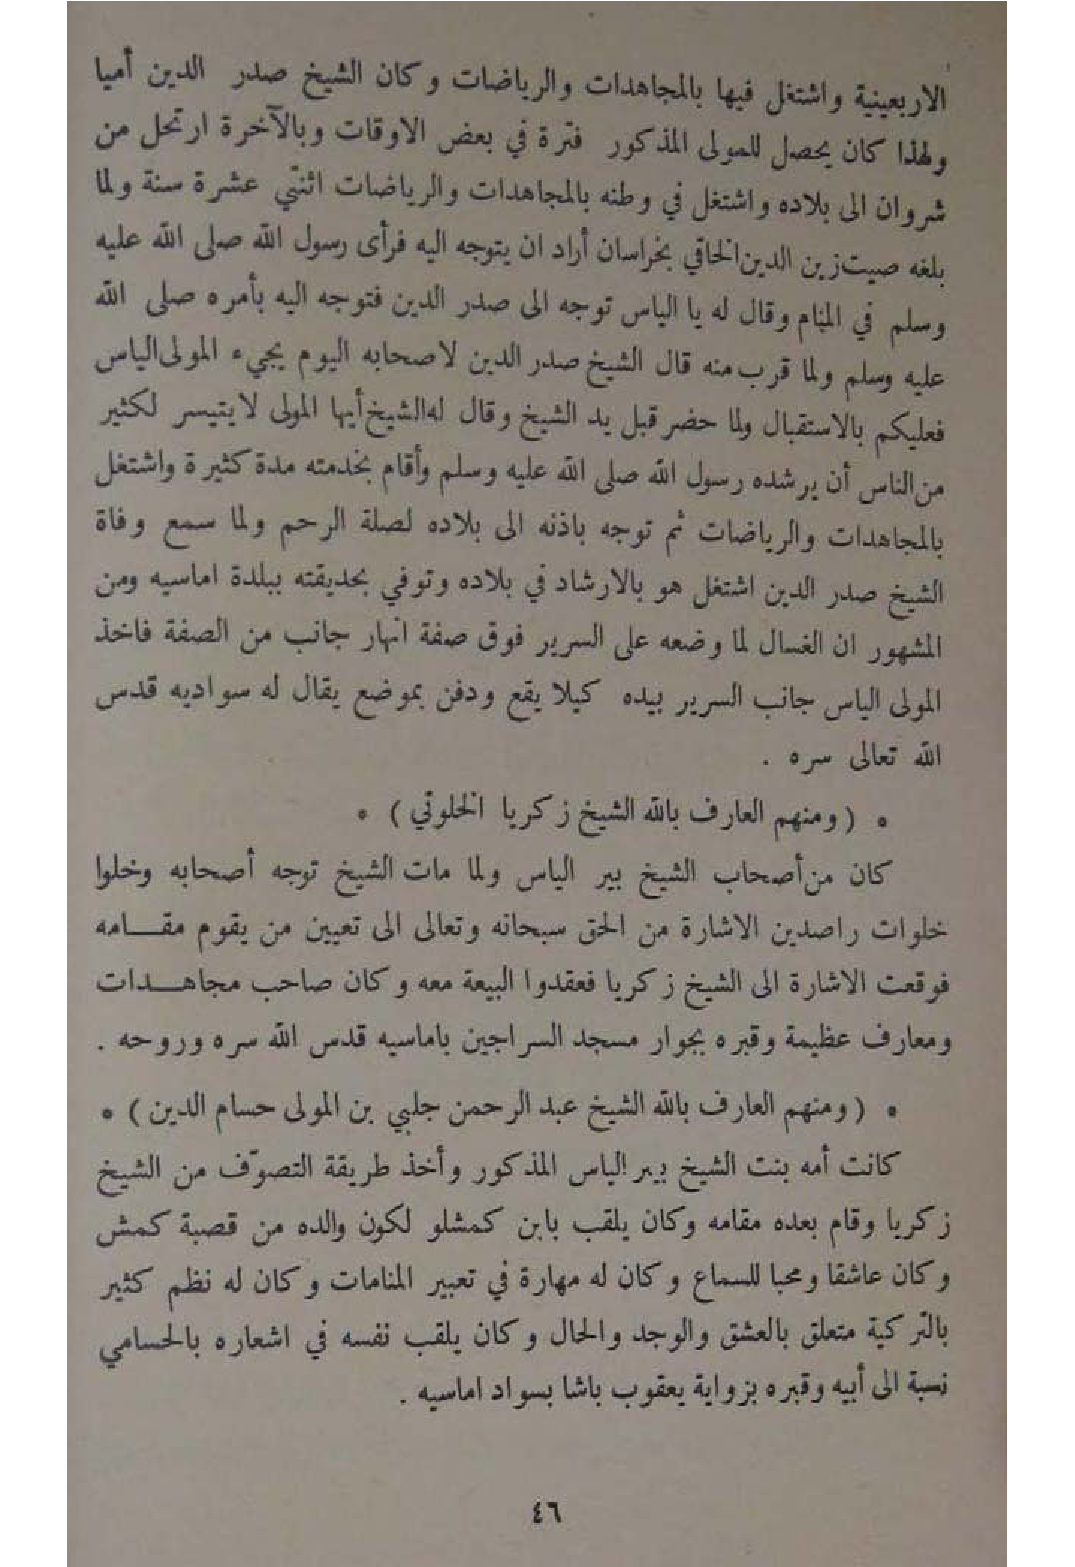 الاربعينية واشتغل فيها بالمجاهدات والرياضات وكان الشيخ صدر الدين أميا
ولهذا كان يحصل للمولى المذكور فترة في بعض الاوقات وبالآخرة ارتحل من
شروان الى بلاده واشتغل في وطنه بالمجاهدات والرياضات اثنتي عشرة سنة ولما
بلغه صيت زين الدين الخافي بخراسان أراد ان يتوجه اليه فرأى رسول الله صلى الله عليه
وسلم في المنام وقال له يا الياس توجه الى صدر الدين فتوجه اليه بأمره صلى الله
عليه وسلم ولما قرب منه قال الشيخ صدر الدين لاصحابه اليوم يجيء المولى الياس
فعليكم بالاستقبال ولما حضر قبل يد الشيخ وقال له الشيخ أيها المولى لا يتيسر لكثير
من الناس أن يرشده رسول الله صلى الله عليه وسلم وأقام بخدمته مدة كثيرة واشتغل
بالمجاهدات والرياضات ثم توجه باذنه الى بلاده لصلة الرحم ولما سمع وفاة
الشيخ صدر الدين اشتغل هو بالارشاد في بلاده وتوفي بحديقته ببلدة اماسيه ومن
المشهور ان الغسال لما وضعه على السرير فوق صفة انهار جانب من الصفة فاخذ
المولى الياس جانب السرير بيده كيلا يقع ودفن بموضع يقال له سواديه قدس
الله تعالى سره .
* ( ومنهم العارف بالله الشيخ زكريا الخلوتي ) *
كان من أصحاب الشيخ بير الياس ولما مات الشيخ توجه أصحابه وخلوا
خلوات راصدين الاشارة من الحق سبحانه وتعالى الى تعيين من يقوم مقـــامه
فوقعت الاشارة الى الشيخ زكريا فعقدوا البيعة معه وكان صاحب مجاهـــدات
ومعارف عظيمة وقبره بجوار مسجد السراجين باماسيه قدس الله سره وروحه .
* ( ومنهم العارف بالله الشيخ عبد الرحمن جلبي بن المولى حسام الدين ) *
كانت أمه بنت الشيخ بير الياس المذكور وأخذ طريقة التصوّف من الشيخ
زكريا وقام بعده مقامه وكان يلقب بابن كمشلو لكون والده من قصبة كمش
وكان عاشقا ومحبا للسماع وكان له مهارة في تعبير المنامات وكان له نظم كثير
بالتركية متعلق بالعشق والوجد والحال وكان يلقب نفسه في اشعاره بالحسامي
نسبة الى أبيه وقبره بزواية يعقوب باشا بسواد اماسيه .
٤٦